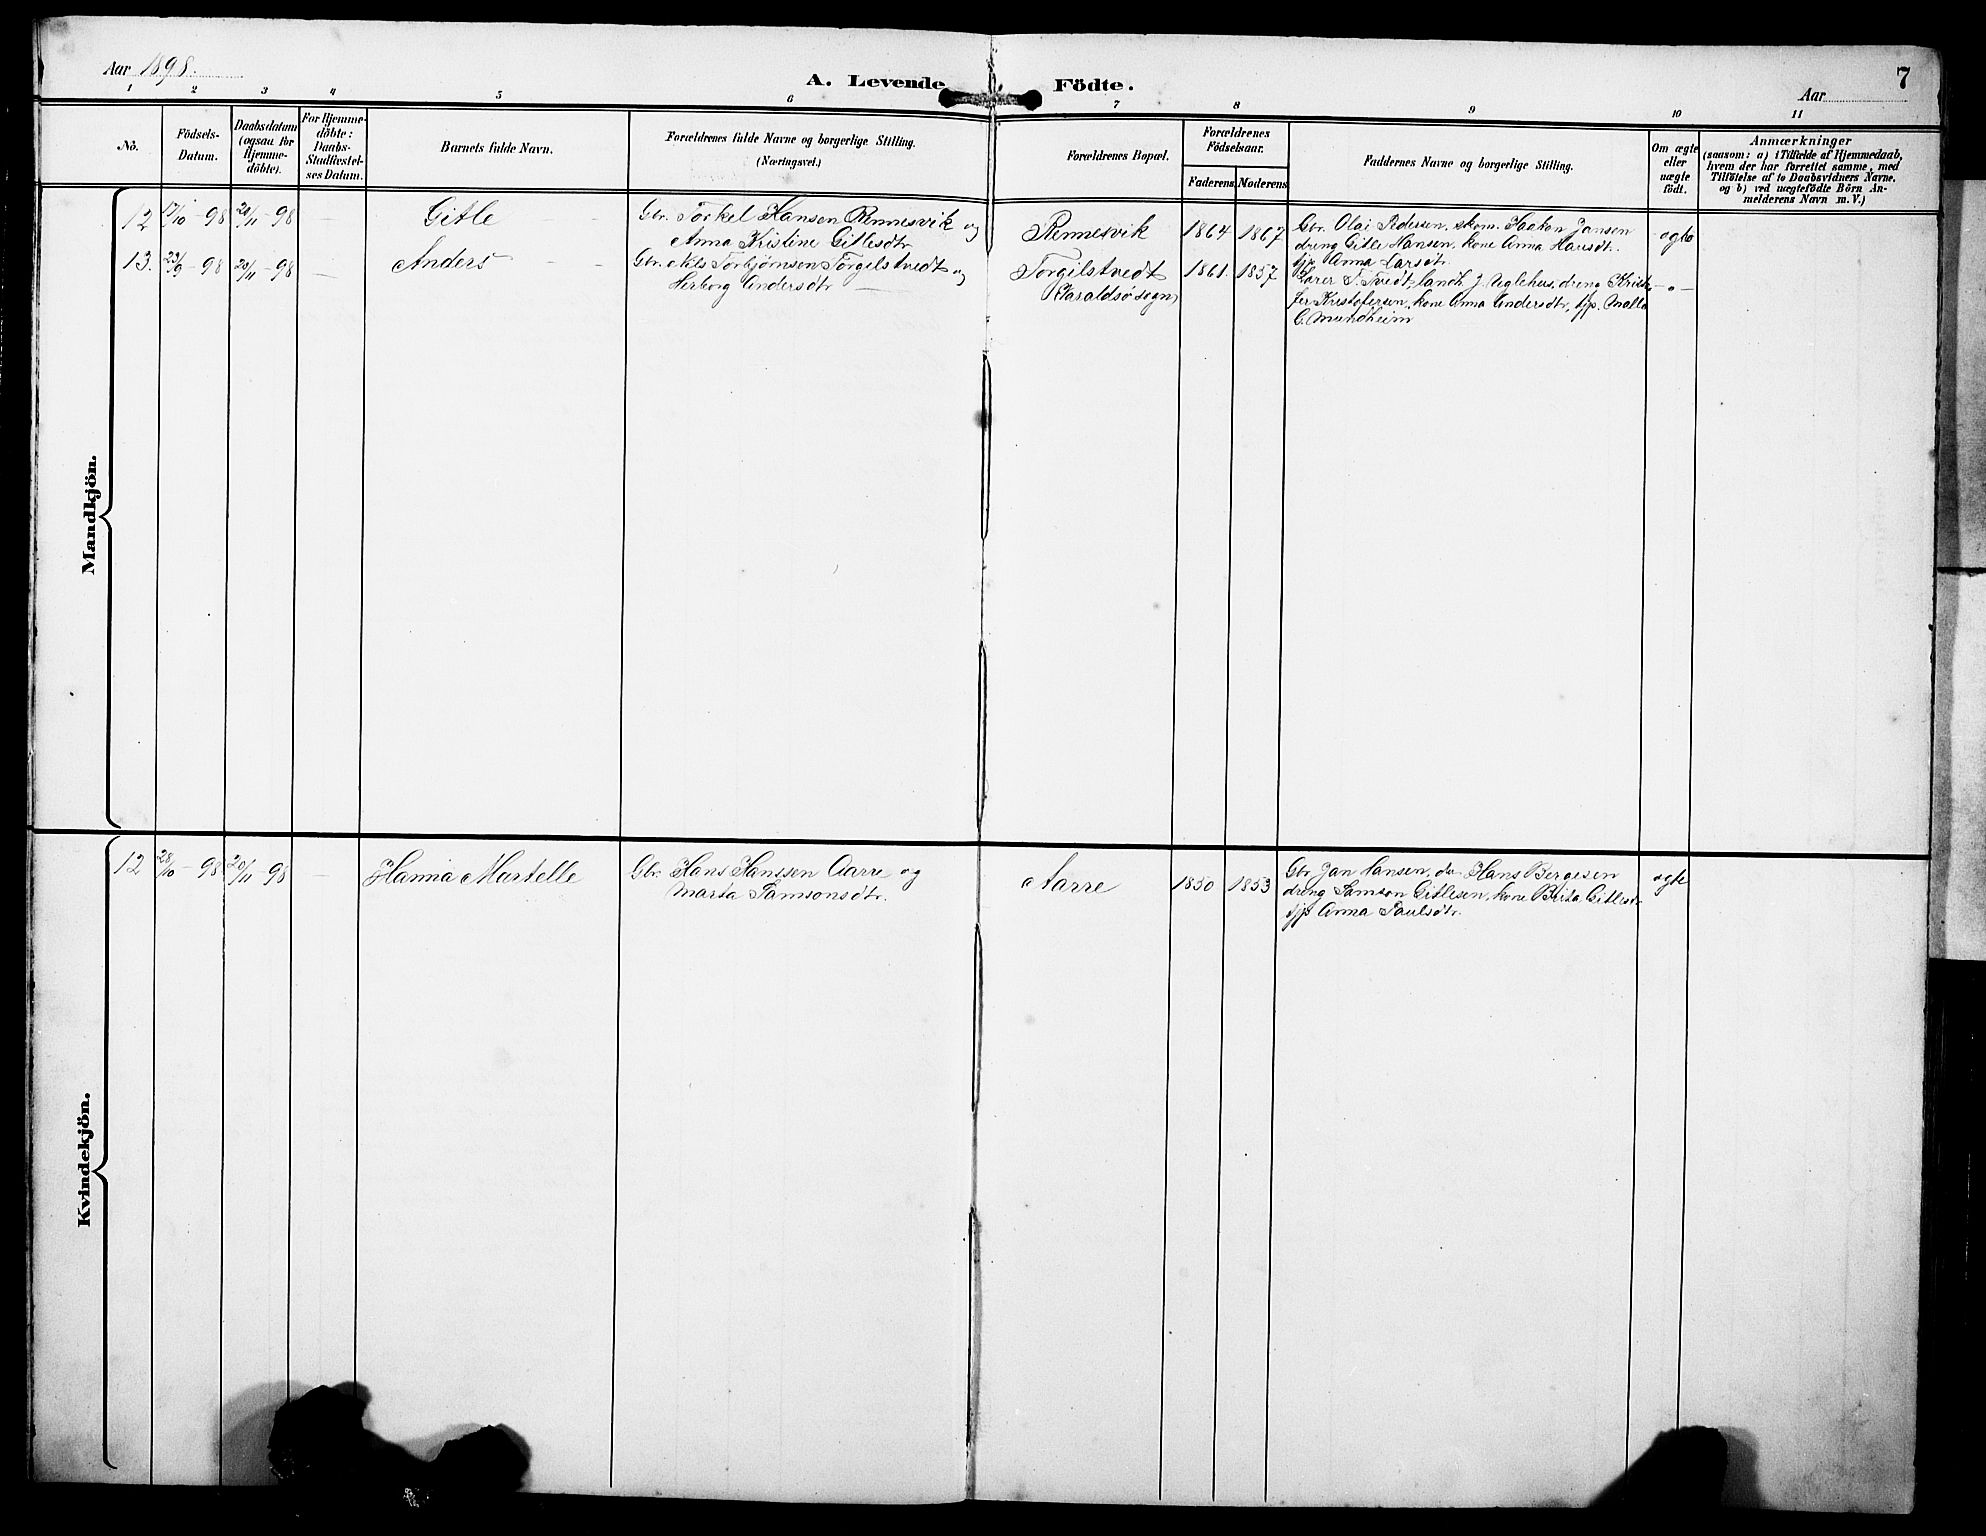 Aar 1898.
A. Levende Födte.
Aar
7
1 2 3 4 5 6 7 8 9 10 11
No.
Födsels-
Datum.
Daabsdatum
(ogsaa for
Hjemme-
döbte).
For Hjemme-
döbte:
Daabs-
Stadfæstel-
ses Datum.
Barnets fulde Navn.
Forældrenes fulde Navne og borgerlige Stilling.
(Næringsvei.)
Forældrenes Bopæl.
Forældrenes
Födselsaar.
Faderens. Moderens.
Faddernes Navne og borgerlige Stilling.
Om ægte
eller
uægte
födt.
Anmærkninger
(saasom: a) i Tilfælde af Hjemmedaab,
hvem der har forrettet samme, med
Tilföielse af to Daabsvidners Navne.
og b) ved uægtefödte Börn An-
melderens Navn m. V.)
Mandkjön.
12 17/10 - 98 20/11 - 98 — Gitle — —
Gbr. Torkel Hansen Rennesvik og
Anna Kristine Gitlesdtr.
Rennesvik 1864 1867
Gbr. Olai Pedersen, skom. Haakon Jansen
dreng Gitle Hansen, kone Anna Hansdt.
pp. Anna Larsdtr.
ægte
13. 23/9 - 98 20/11 - 98 — Anders — —
Gbr. Nils Torbjørnsen Torgilstvedt og
Herborg Andersdtr —
Torgilstvedt
(Vasaldsø sogn)
1861. 1857
Larer T. Tvedt, landh. J. Uglehus, dreng Krist-
fer Kristofersen, kone Anna Andersdtr, pp. Malla
C. Mundheim
— " —
Kvindekjön.
12 28/10 - 98 20/11 - 98 — Hanna Martelle
Gbr. Hans Hanssen Aarre og
Marta Samsonsdtr.
Aarre 1850 1853
Gbr Jan Hansen, do Hans Bergesen
dreng Samson Gitlesen, kone Brita Gitlesdtr
pp Anna Paulsdtr.
ægte